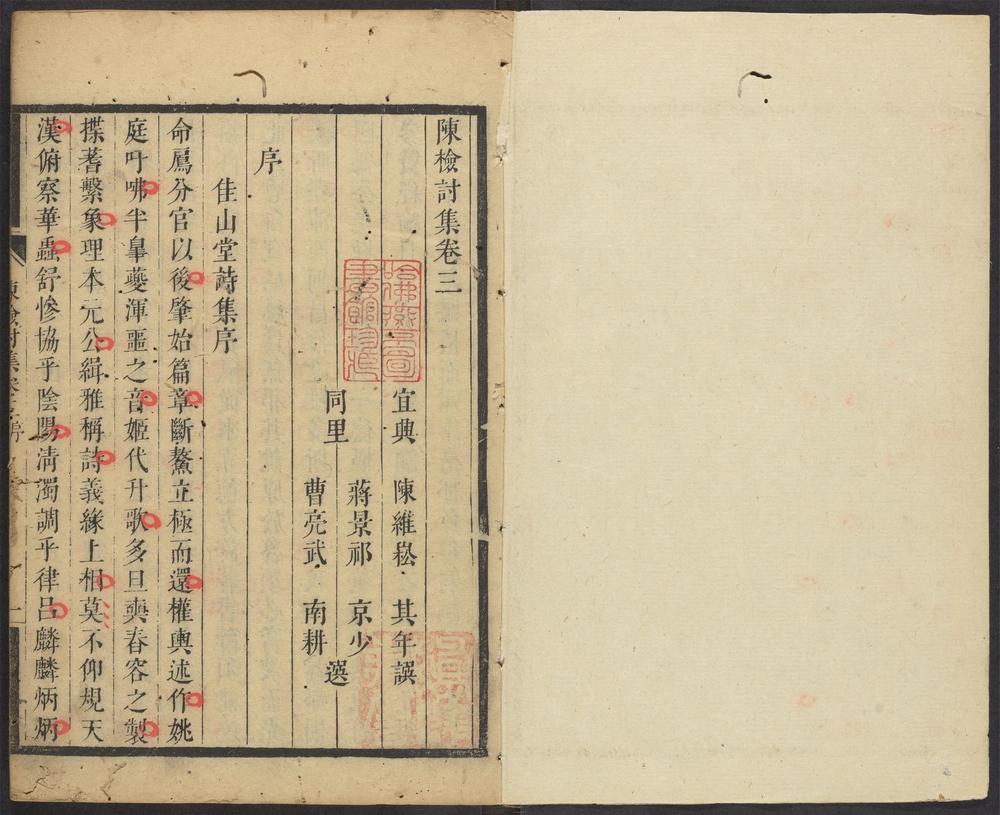 陳檢討集卷三
宜興 陳維崧 其年譔
同里 蔣景祁 京少
曹亮武 南耕 選
序
佳山堂詩集序
命鳳分官以後肇始篇章斷鰲立極而還權輿述作姚
庭吁咈半皐夔渾噩之音姬代升歌多旦奭春容之製
揲蓍繫象理本元公緝雅稱詩義緣上相莫不仰規天
漢俯察華蟲舒慘協乎陰陽淸濁調乎律呂麟麟炳炳
哈佛燕京圖書館珍藏